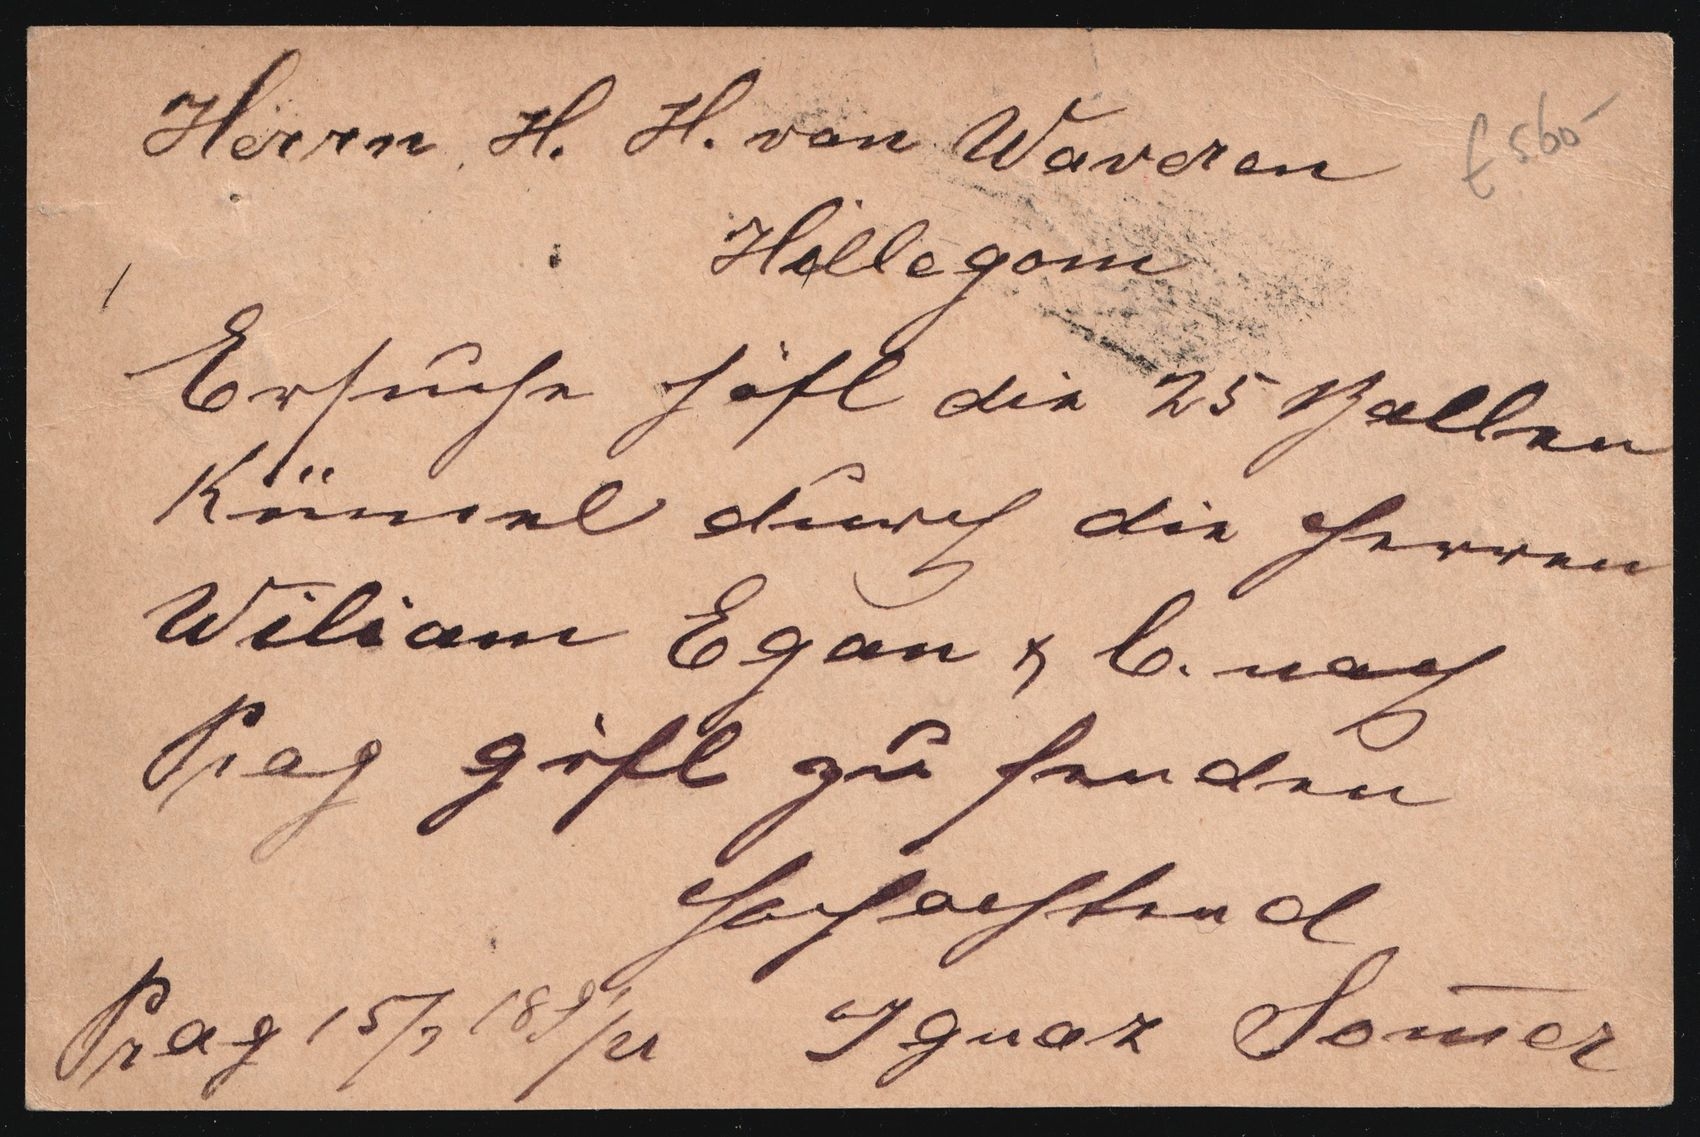 Herrn H. H. van Waveren
Hillegom
£ 560-
Ersuche höfl die 25 Ballen
Kümel durch die Herren
Wiliam Egan & C. nach
Prag göfl zu senden
Hochachtend
Prag 15/7 Ignaz Somer